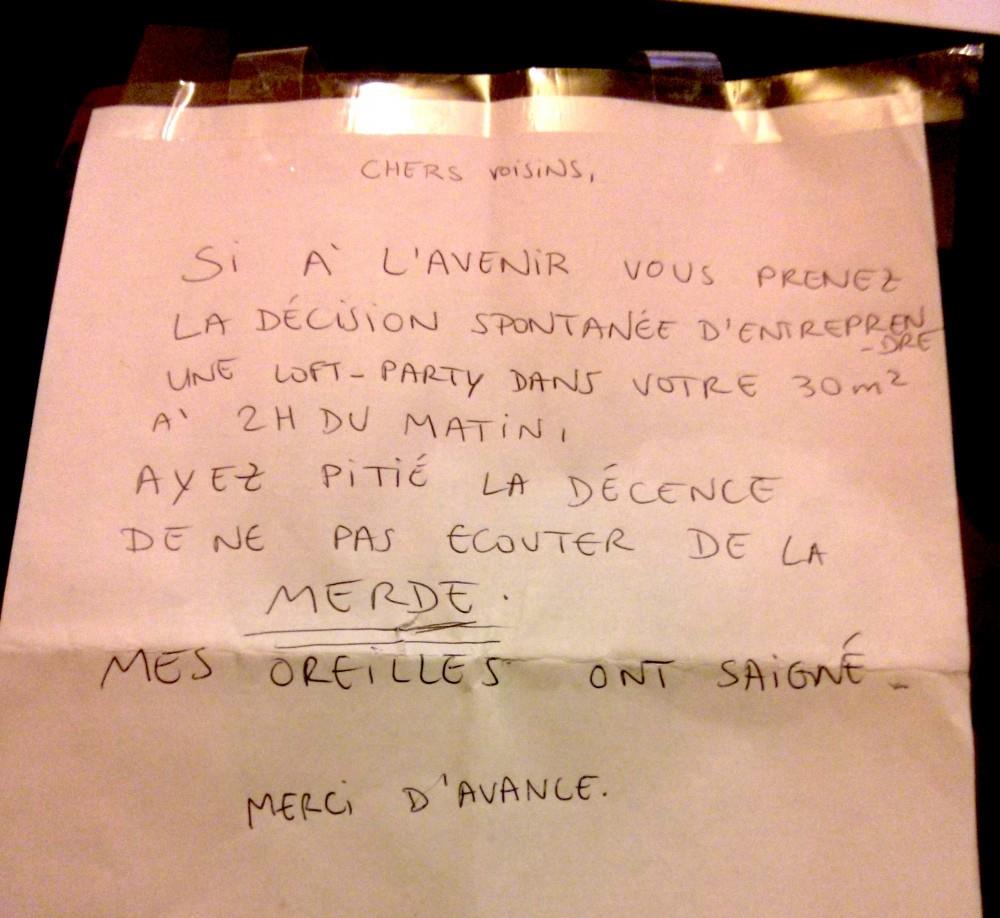 CHERS VOISINS,
Si A' L'AVENIR VOUS PRENEZ
LA DÉCISION SPONTANÉE D'ENTREPREN-
-DRE
UNE LOFT-PARTY DANS VOTRE 30m²
A' 2H DU MATIN,
AYEZ PITIÉ LA DÉCENCE
DE NE PAS ECOUTER DE LA
MERDE.
MES OREILLES ONT SAIGNÉ.
MERCI D'AVANCE.